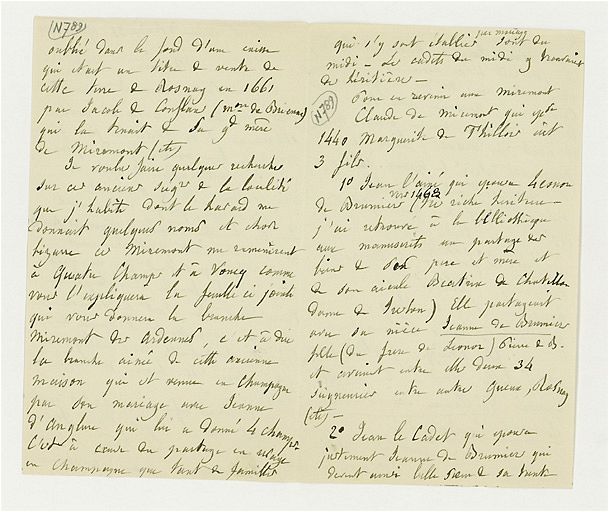 N789
oublié dans le fond d'une caisse
qui était un titre de vente de
cette terre de Rosnay en 1661
par Jacob de Conflans (mon de Brienne)
qui la tenait de sa gd mère
de Miremont (etc)
Je voulus faire quelques recherches
sur ces anciens seigrs de la localité
que j'habite dont le hasard me
donnait quelques noms et chose
bizarre ces Miremont me ramenèrent
à Quatre Champs et à Voncq comme
vous l'expliquera la feuille ci jointe
qui vous donnera la branche
Miremont des Ardennes, c et à dire
la branche ainée de cette ancienne
maison qui est venue en Champagne
par son mariage avec Jeanne
d'Anglure qui lui a donné 4 champs
C'est à cause du partage en
en Champagne que tant de familles
qui s'y sont établies par mariage sont du
midi – Les cadets du midi y trouvaient
des héritières –
N789
Pour en revenir aux Miremont
Claude de Miremont qui ept
1440 Marguerite de Thillois eut
3 fils.
1º Jean l'ainé qui épousa Leonor
vers 1468
de Brumier riche héritière –
j'ai retrouvé à la bibliothèque
aux manuscrits un partage des
biens de ses père et mère et
de son aieule Béatrix de Chatillon
dame de ) Elle partageait
avec sa nièce Jeanne de Brumier
fille (du frère de Leonor) Pierre de B.
et avaient entre elles deux 34
seigneuries entre autres Gueux, Rosnay
(etc) –
2º Jean le Cadet qui épousa
justement Jeanne de Brumier qui
devint ainsi belle soeur de sa tante